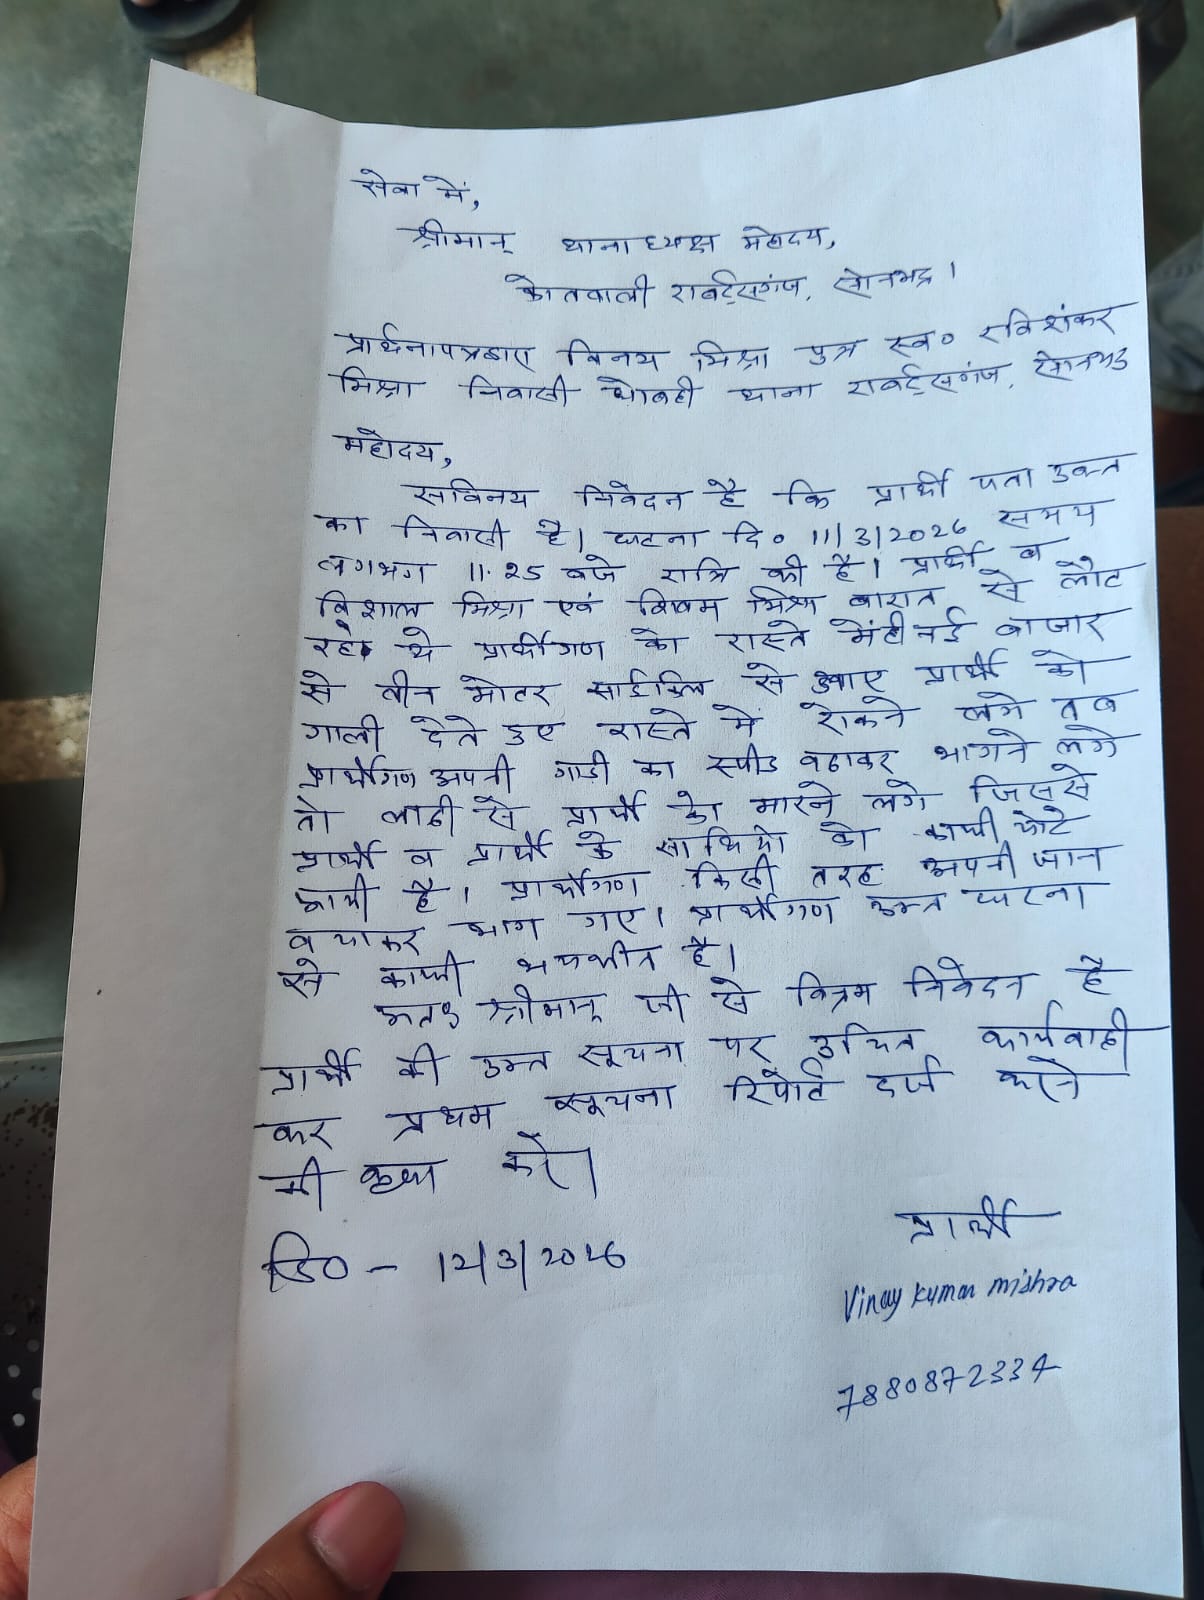 सेवा में,
श्रीमान् थानाध्यक्ष महोदय,
कोतवाली राबर्ट्सगंज, सोनभद्र।
प्रार्थनापत्रद्वारा विनय मिश्रा पुत्र स्व० रविशंकर
मिश्रा निवासी थाना राबर्ट्सगंज, सोनभद्र
महोदय,
सविनय निवेदन है कि प्रार्थी पता उक्त
का निवासी है। घटना दि० 11/3/2026 समय
लगभग 11.25 बजे रात्रि की है। प्रार्थी व
विशाल मिश्रा एवं मिश्रा बारात से लौट
रहे थे प्रार्थीगण को रास्ते में ही नई बाजार
से तीन मोटर साईकिल से आए प्रार्थी को
गाली देते हुए रास्ते में रोकने लगे तब
प्रार्थीगण अपनी गाडी का स्पीड बढाकर भागने लगे
तो लाठी से प्रार्थी को मारने लगे जिससे
प्रार्थी व प्रार्थी के साथियो को काफी चोटे
आयी है। प्रार्थीगण किसी तरह अपनी जान
बचाकर भाग गए। प्रार्थीगण उक्त घटना
से काफी भयभीत है।
अतः श्रीमान् जी से विनम्र निवेदन है
प्रार्थी की उक्त सूचना पर उचित कार्यवाही
कर प्रथम सूचना रिपोर्ट दर्ज करने
की कृपा करें।
प्रार्थी
दि० - 12/3/2026
Vinay Kumar mishra
7880872334